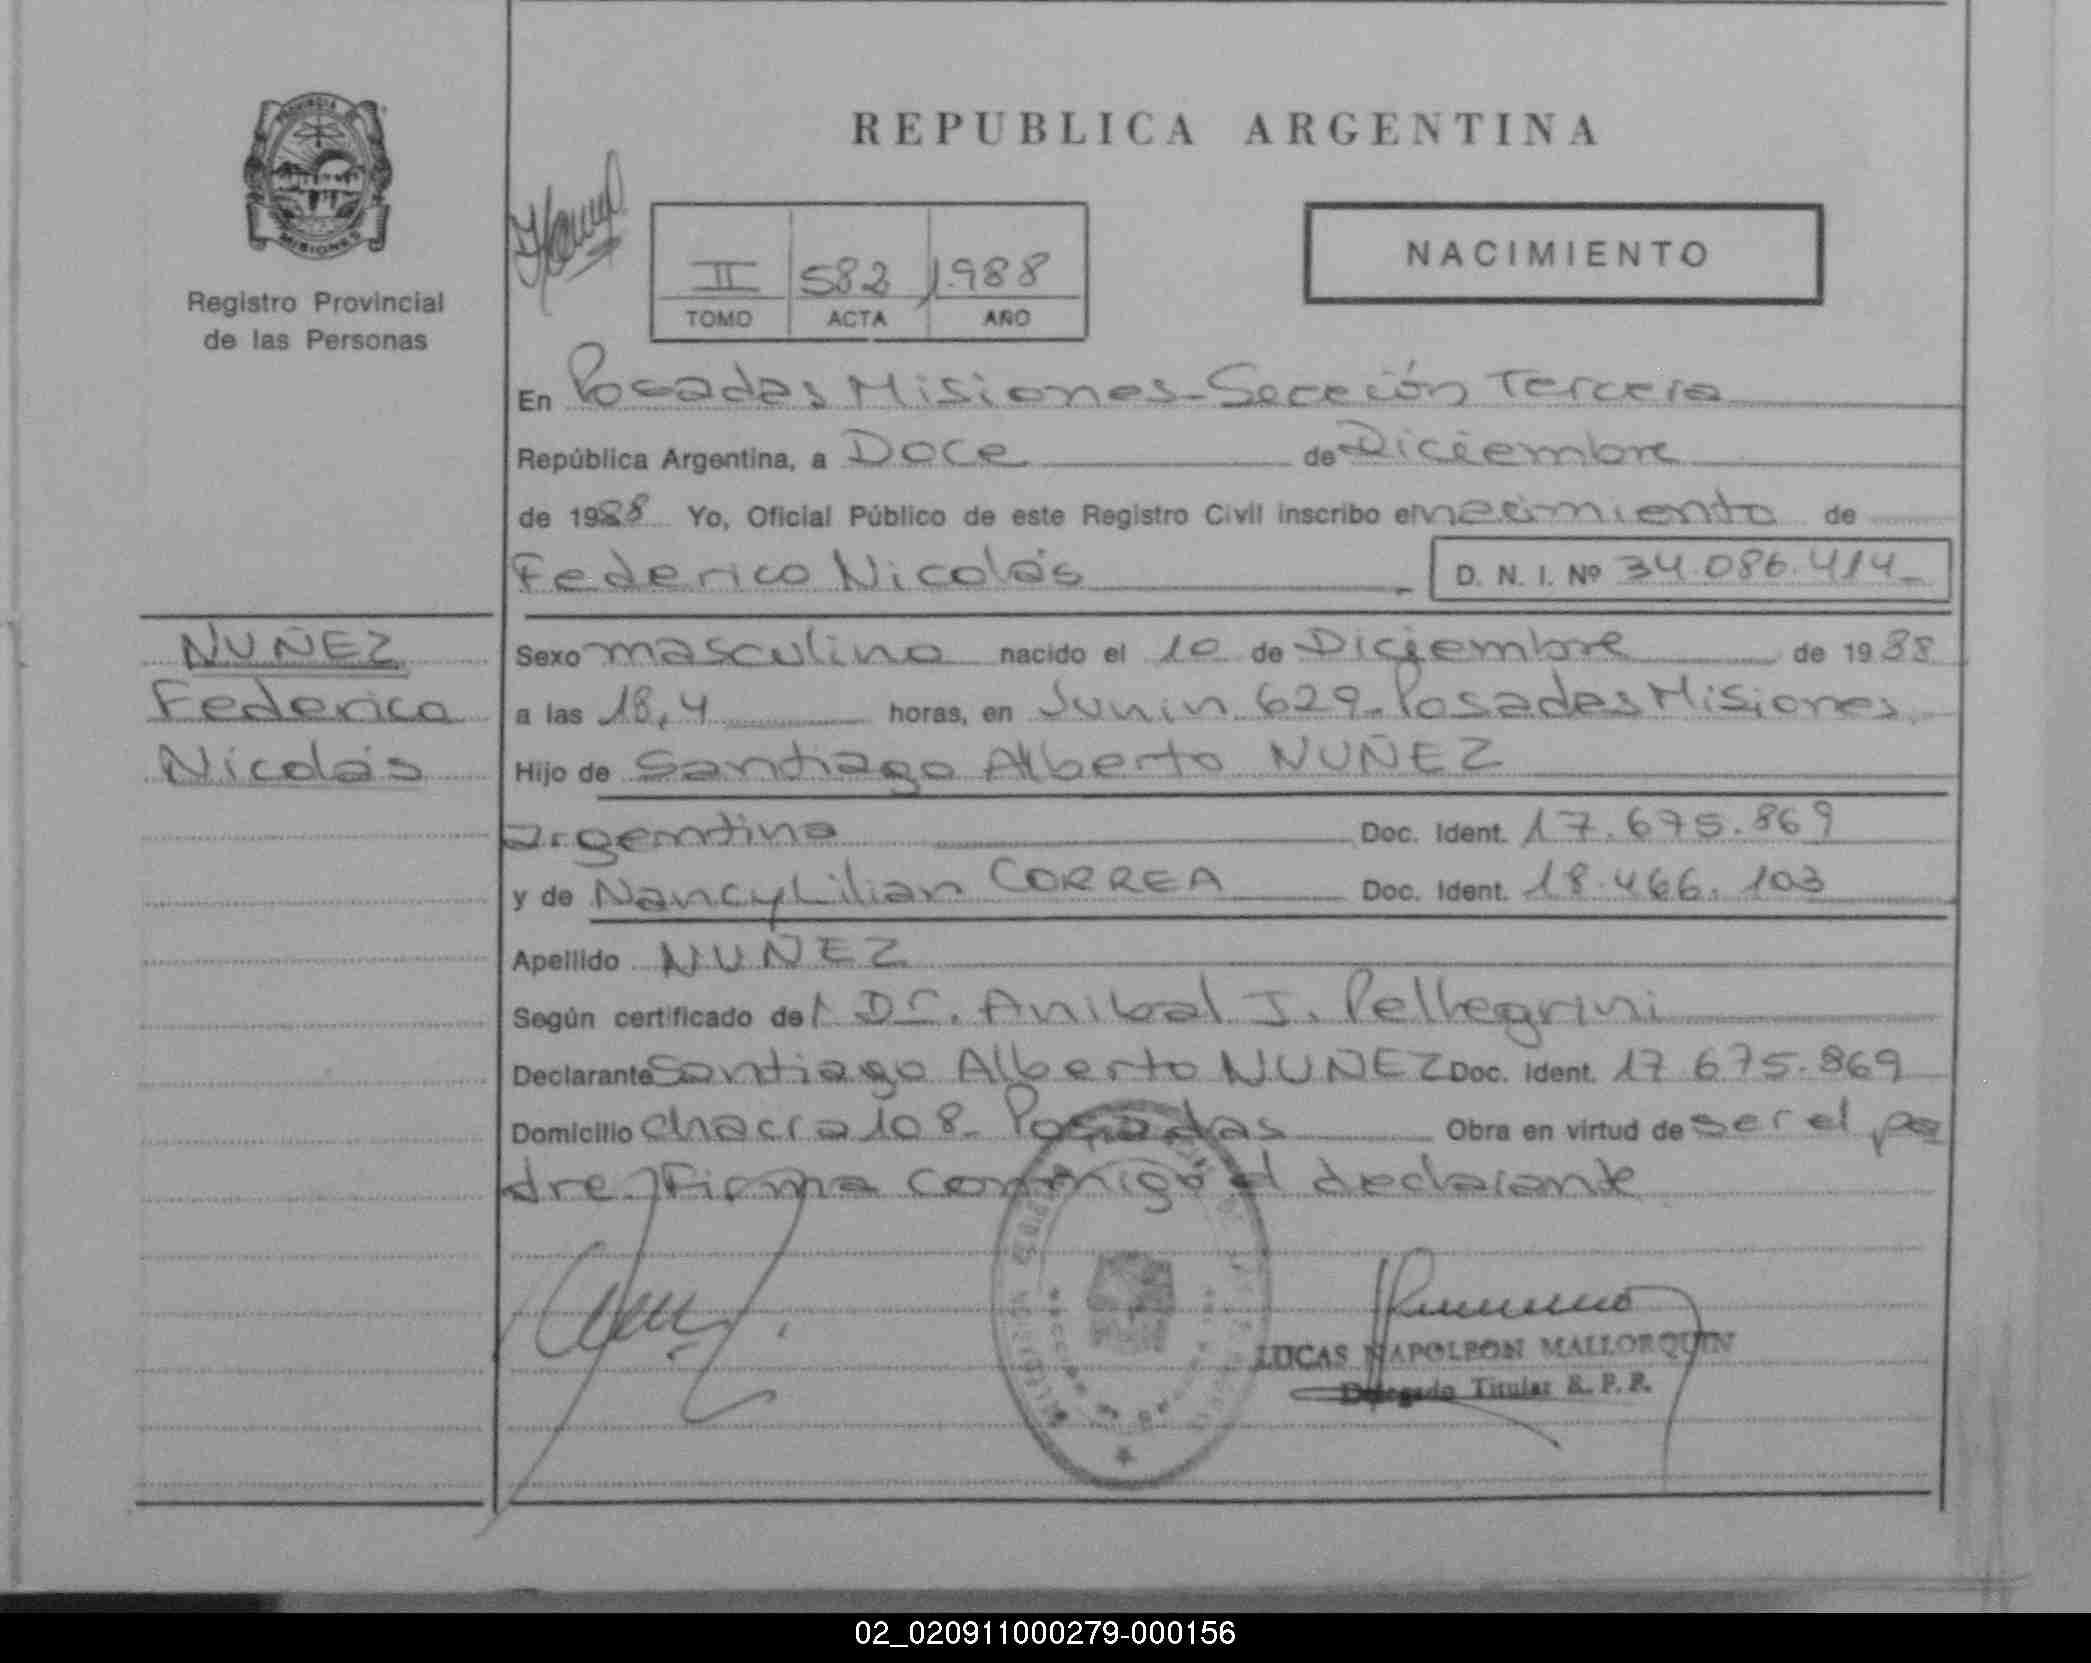 REPUBLICA ARGENTINA
PROVINCIA DE
MISIONES
Registro Provincial
de las Personas
II 582 1.988
TOMO ACTA AÑO
NACIMIENTO
En Posadas Misiones-Sección Tercera
República Argentina, a Doce de Diciembre
de 1988 Yo, Oficial Público de este Registro Civil inscribo el nacimiento de
Federico Nicolás D. N. I. Nº 34.086.414
NUÑEZ
Federico
Nicolás
Sexo masculino nacido el 10 de Diciembre de 1988
a las 18,4 horas, en Junin 629-Posadas Misiones
Hijo de Santiago Alberto NUÑEZ
argentina Doc. Ident. 17.675.869
y de Nancy Lilian CORREA Doc. Ident. 18.466.103
Apellido NUÑEZ
Según certificado del Dr. Anibal J. Pellegrini
Declarante Santiago Alberto NUÑEZ Doc. Ident. 17 675.869
Domicilio chacra 108- Posadas Obra en virtud de ser el pa
dre, Firma conmigo el declarante
LUCAS NAPOLEON MALLORQUIN
Delegado Titular R. P. P.
02_020911000279-000156